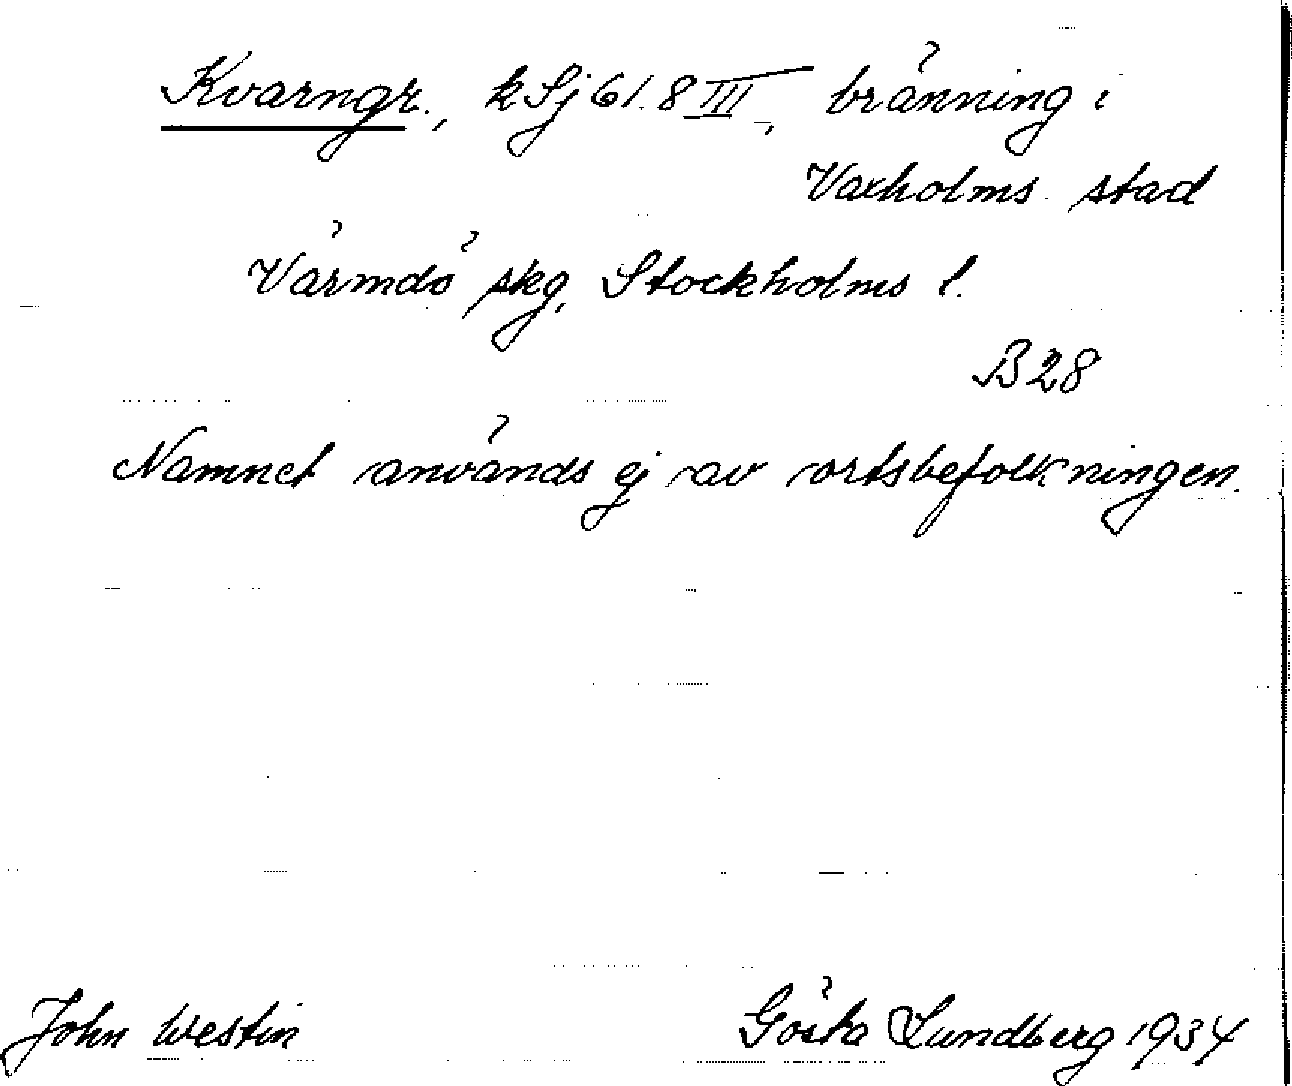 Kvarngr., k Sj 61.8 III, bränning i
Vaxholms stad
Värmdö skg, Stockholms l.
B 28
Namnet används ej av ortsbefolkningen.
John Westin
Gösta Sundberg 1934